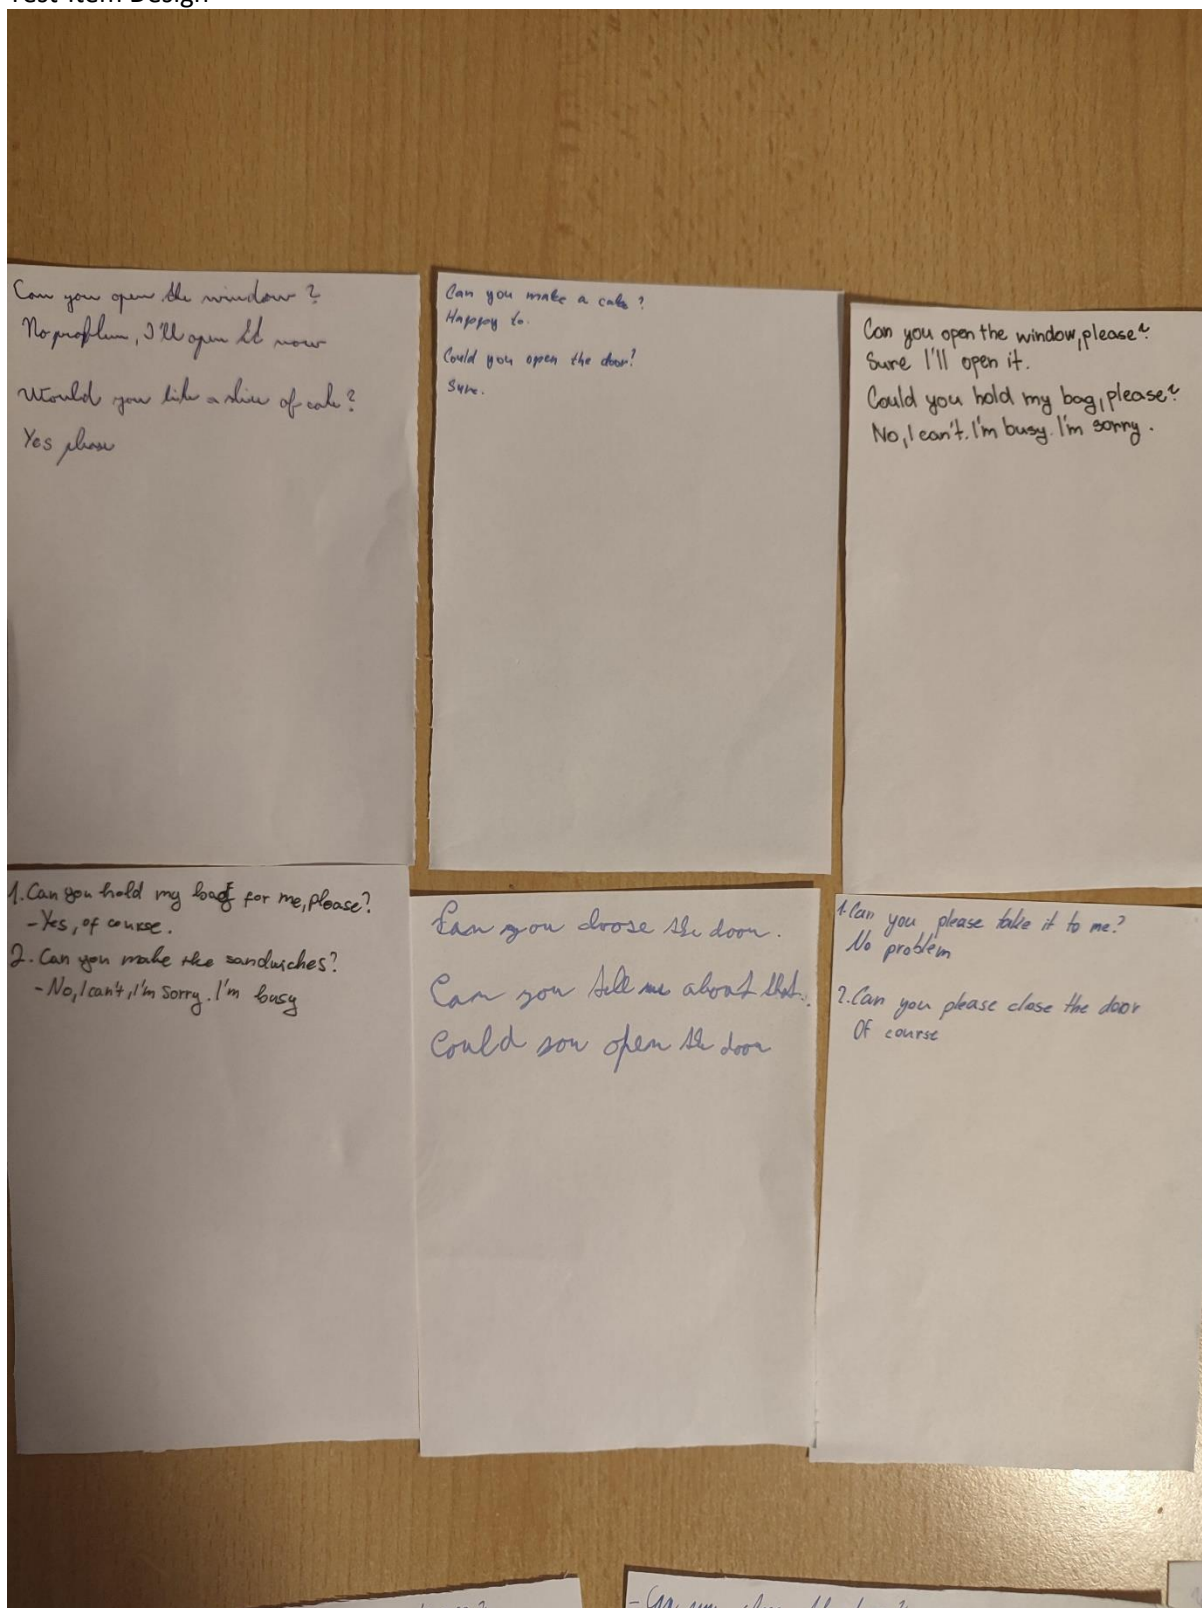 Test Item Design
Can you open the window?
No problem, I'll open it now
Would you like a slice of cake?
Yes please
Can you make a cake?
Happy to.
Could you open the door?
Sure.
Can you open the window, please?
Sure I'll open it.
Could you hold my bag, please?
No, I can't. I'm busy. I'm sorry.
1. Can you hold my bag for me, please?
- Yes, of course.
2. Can you make the sandwiches?
- No, I can't, I'm sorry. I'm busy
Can you cloose the door.
Can you tell me about that.
Could you open the door
1. Can you please take it to me?
No problem
2. Can you please close the door
Of course